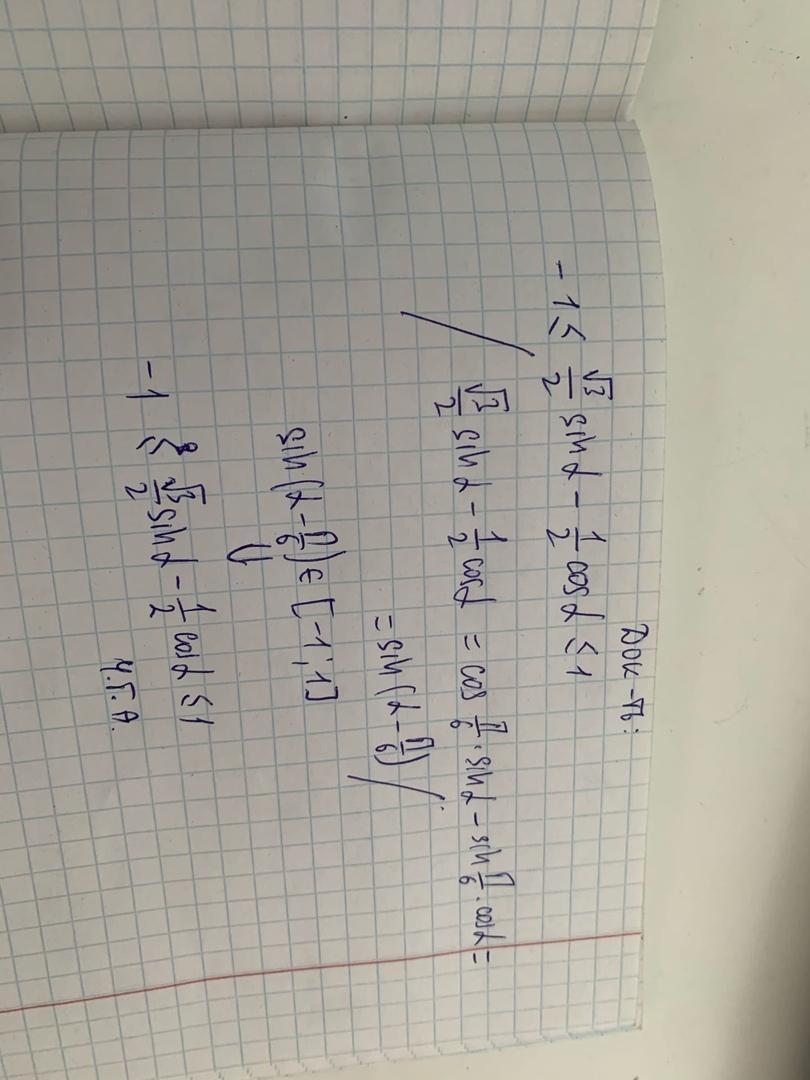 Док-ть:
-1 ≤ √3/2 sin α - 1/2 cos α ≤ 1
/ √3/2 sin α - 1/2 cos α = cos π/6 · sin α - sin π/6 · cos α =
= sin (α - π/6) /
sin (α - π/6) ∈ [-1; 1]
⇓
-1 ≤ √3/2 sin α - 1/2 cos α ≤ 1
ч.т.д.